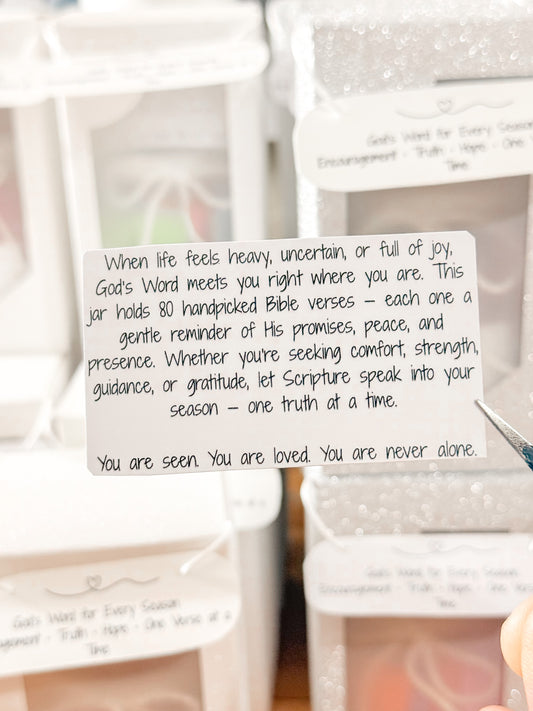 God's Word for Every Season
Encouragement - Truth - Hope - One
Time
When life feels heavy, uncertain, or full of joy,
God's Word meets you right where you are. This
jar holds 80 handpicked Bible verses – each one a
gentle reminder of His promises, peace, and
presence. Whether you're seeking comfort, strength,
guidance, or gratitude, let Scripture speak into your
season – one truth at a time.
You are seen. You are loved. You are never alone.
God's Word for Every Season
Encouragement - Truth - Hope - One Verse at a
Time
God's Word for Every Season
agement - Truth - Hope - One Verse at a
Time